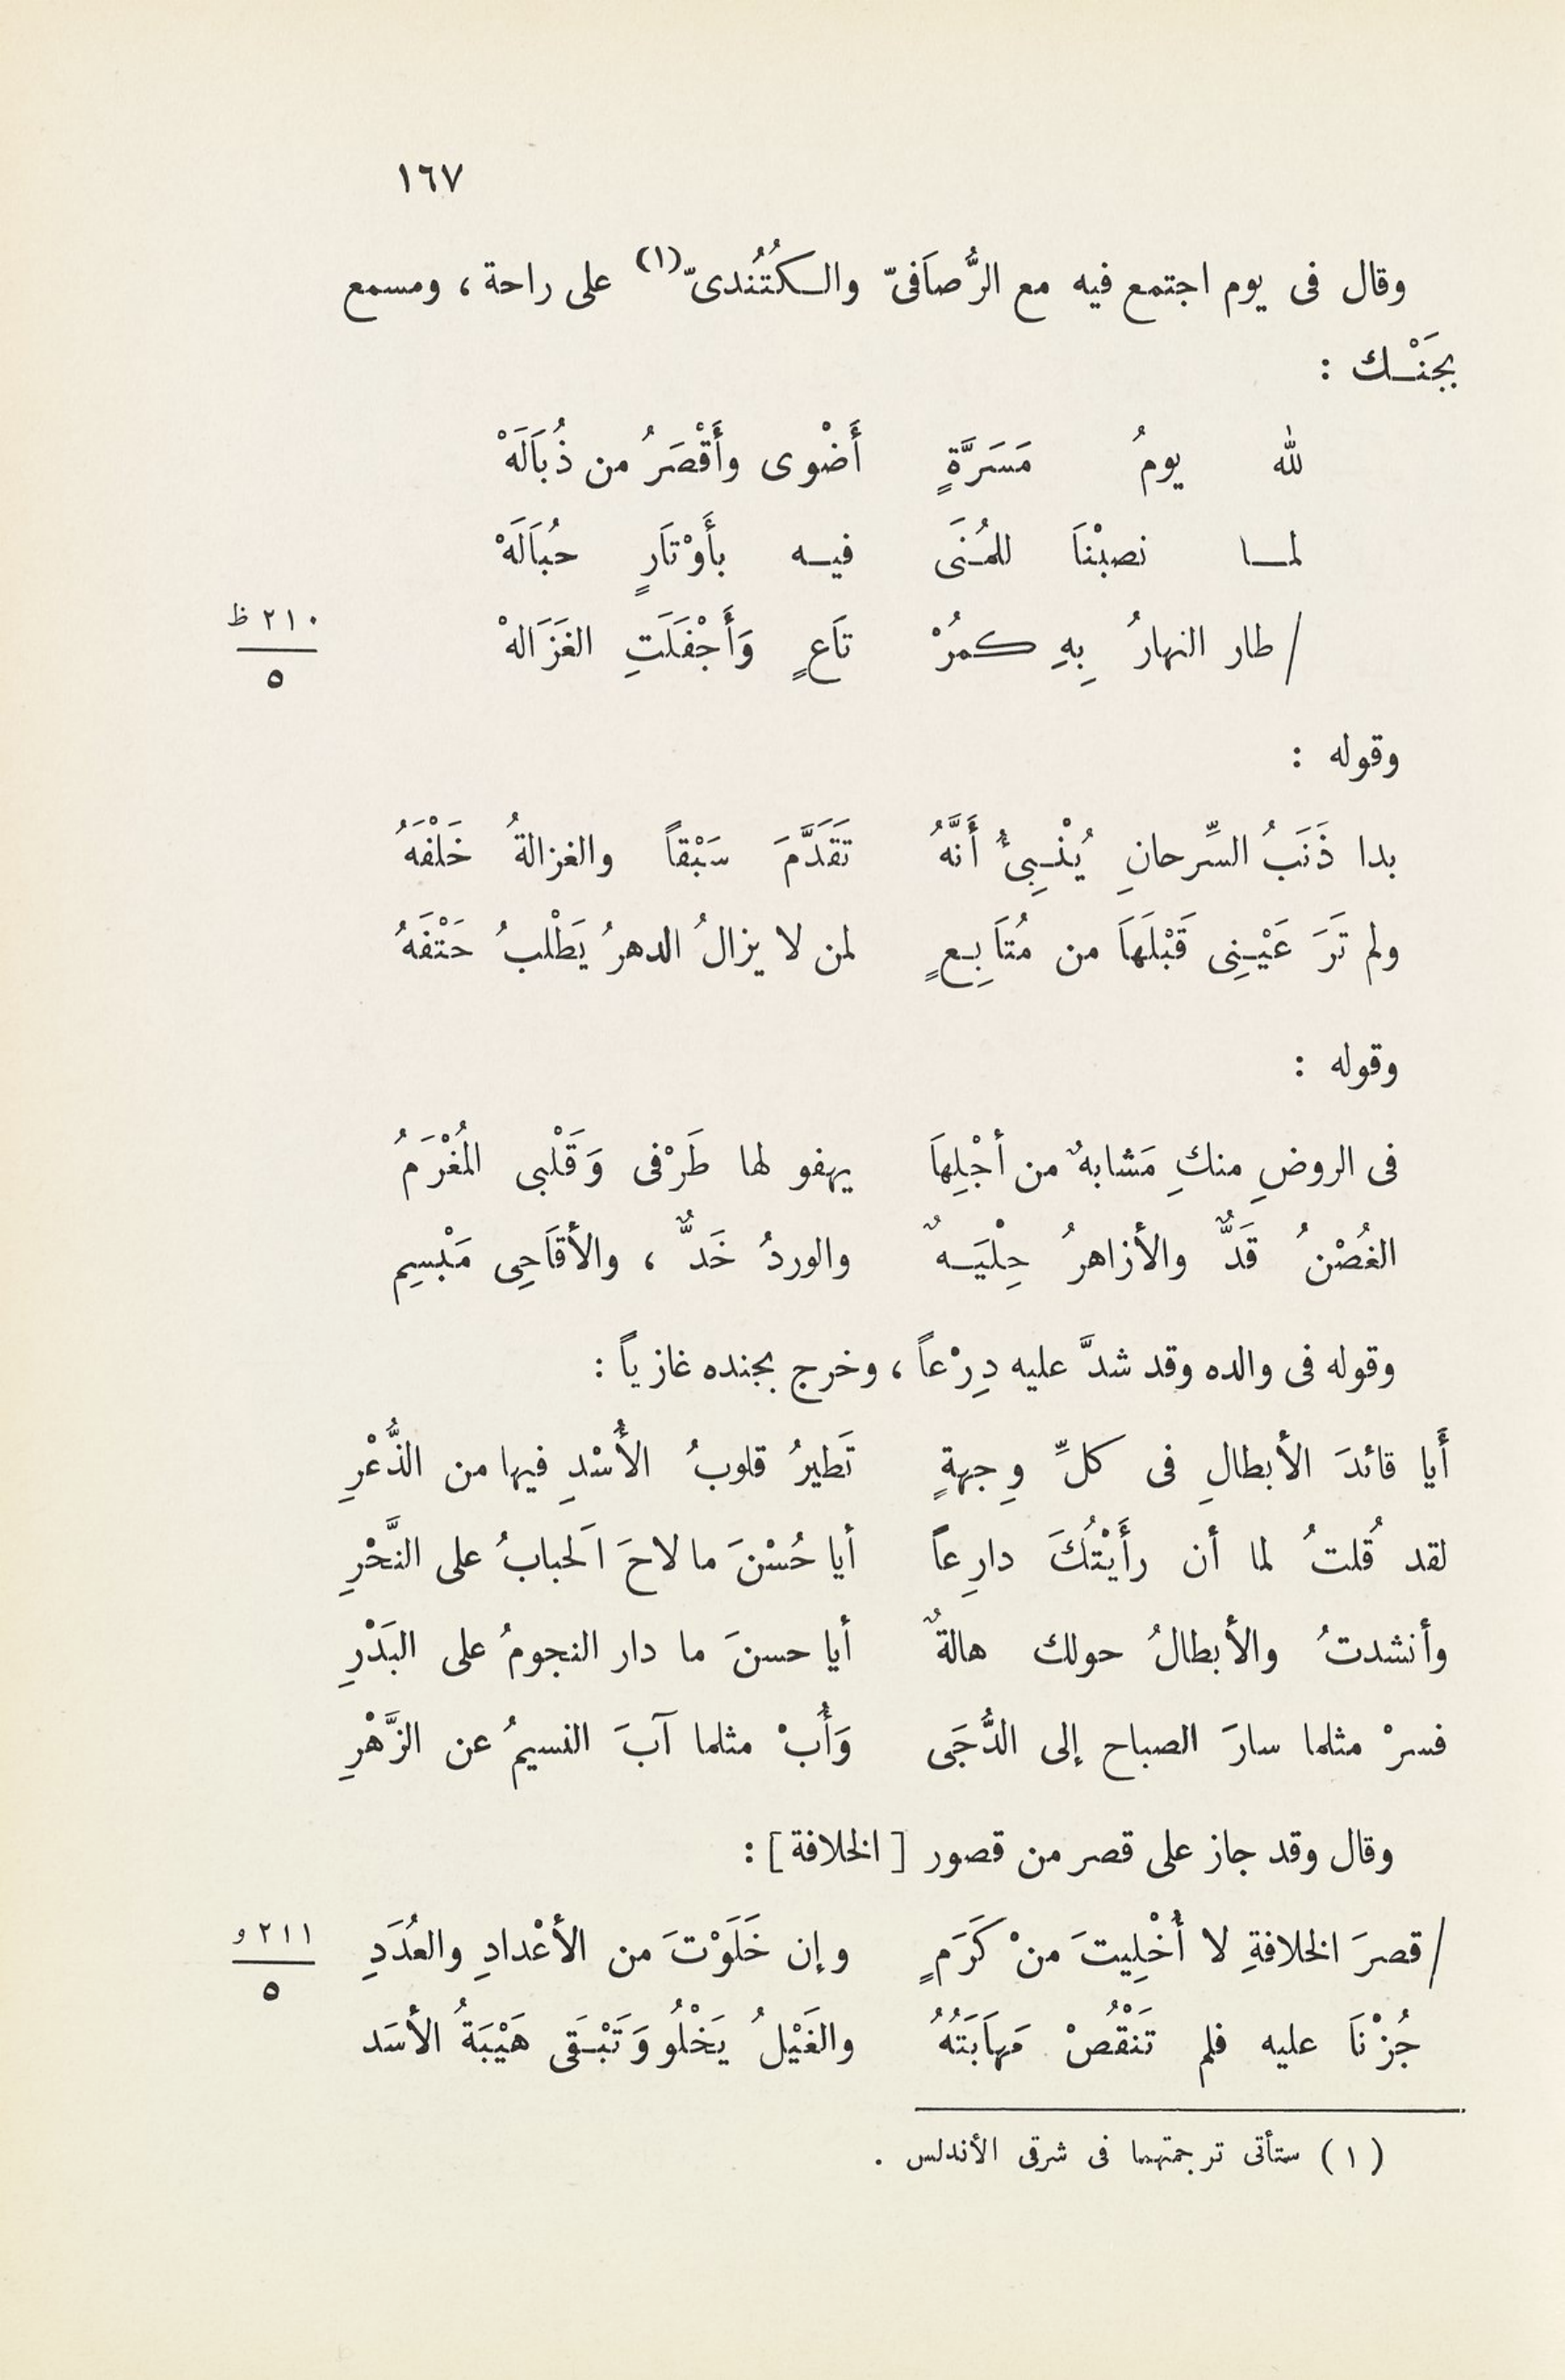 ١٦٧
وقال فى يوم اجتمع فيه مع الرُّصاَفىّ والكُتُندىّ(١) على راحة ، ومسمع
بجَنْك :
لله يومُ مَسَرَّةٍ أَضْوى وأَقْصَرُ من ذُبَالَهْ
لما نصبْناَ للمُنَى فيه بأَوْتاَرٍ حُبَالَهْ
/ طار النهارُ بِهِ كمرُْ تاَعٍ وَأَجْفَلَتِ الغَزَالهْ
٢١٠ ظ
٥
وقوله :
بدا ذَنَبُ السِّرحانِ يُنْبِئُ أَنَّهُ تَقَدَّمَ سَبْقاً والغزالةُ خَلْفَهُ
ولم تَرَ عَيْنِى قَبْلَهاَ من مُتاَبِعٍ لمن لا يزالُ الدهرُ يَطْلبُ حَتْفَهُ
وقوله :
فى الروضِ منكِ مَشابهٌ من أجْلِهاَ يهفو لها طَرْفى وَقَلْبى المُغْرَمُ
الغُصْنُ قَدٌّ والأزاهرُ حِلْيَهٌ والوردُ خَدٌّ ، والأقاَحِى مَبْسِم
وقوله فى والده وقد شدَّ عليه دِرْعاً ، وخرج بجنده غازياً :
أَيا قائدَ الأبطالِ فى كلِّ وِجهةٍ تَطيرُ قلوبُ الأُسْدِ فيها من الذُّعْرِ
لقد قُلتُ لما أن رأَيْتُكَ دارِعاً أيا حُسْنَ ما لاحَ الَحبابُ على النَّحْرِ
وأنشدتُ والأبطالُ حولك هالةٌ أيا حسنَ ما دار النجومُ على البَدْرِ
فسرْ مثلما سارَ الصباح إلى الدُّجَى وَأُبْ مثلما آبَ النسيمُ عن الزَّهْرِ
وقال وقد جاز على قصر من قصور [ الخلافة ] :
/ قصرَ الخلافةِ لا أُخْلِيتَ منْ كَرَمٍ وإن خَلَوْتَ من الأعْدادِ والعُدَدِ
٢١١ و
٥
جُزْنَا عليه فلم تَنْقُصْ مَهاَبَتُهُ والغَيْلُ يَخْلُو وَتَبْقَى هَيْبَةُ الأسَد
(١) ستأتى ترجمتهما فى شرقى الأندلس .